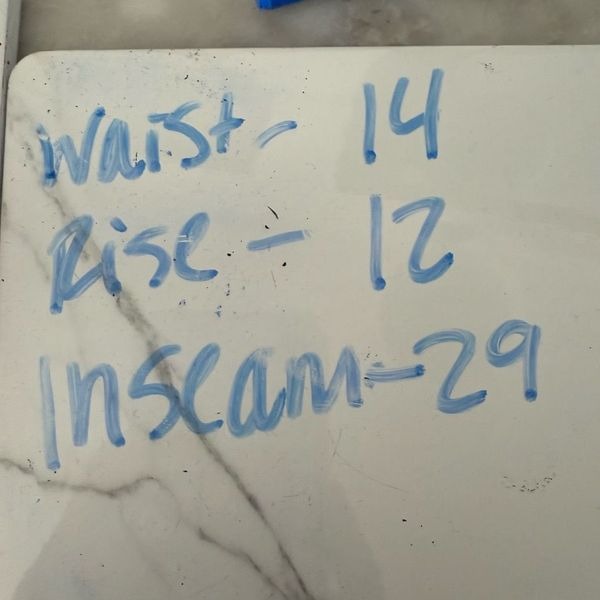 waist - 14
Rise - 12
Inseam - 29